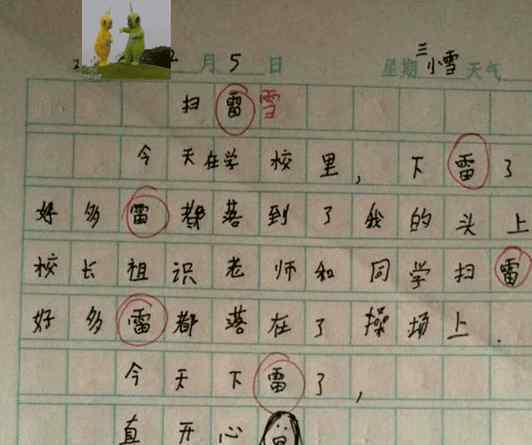 2月5日 星期三 小雪 天气
扫雷雪
今天在学校里，下雷了
好多雷都落到了我的头上
校长祖识老师和同学扫雷
好多雷都落在了操场上.
今天下雷了，
真开心